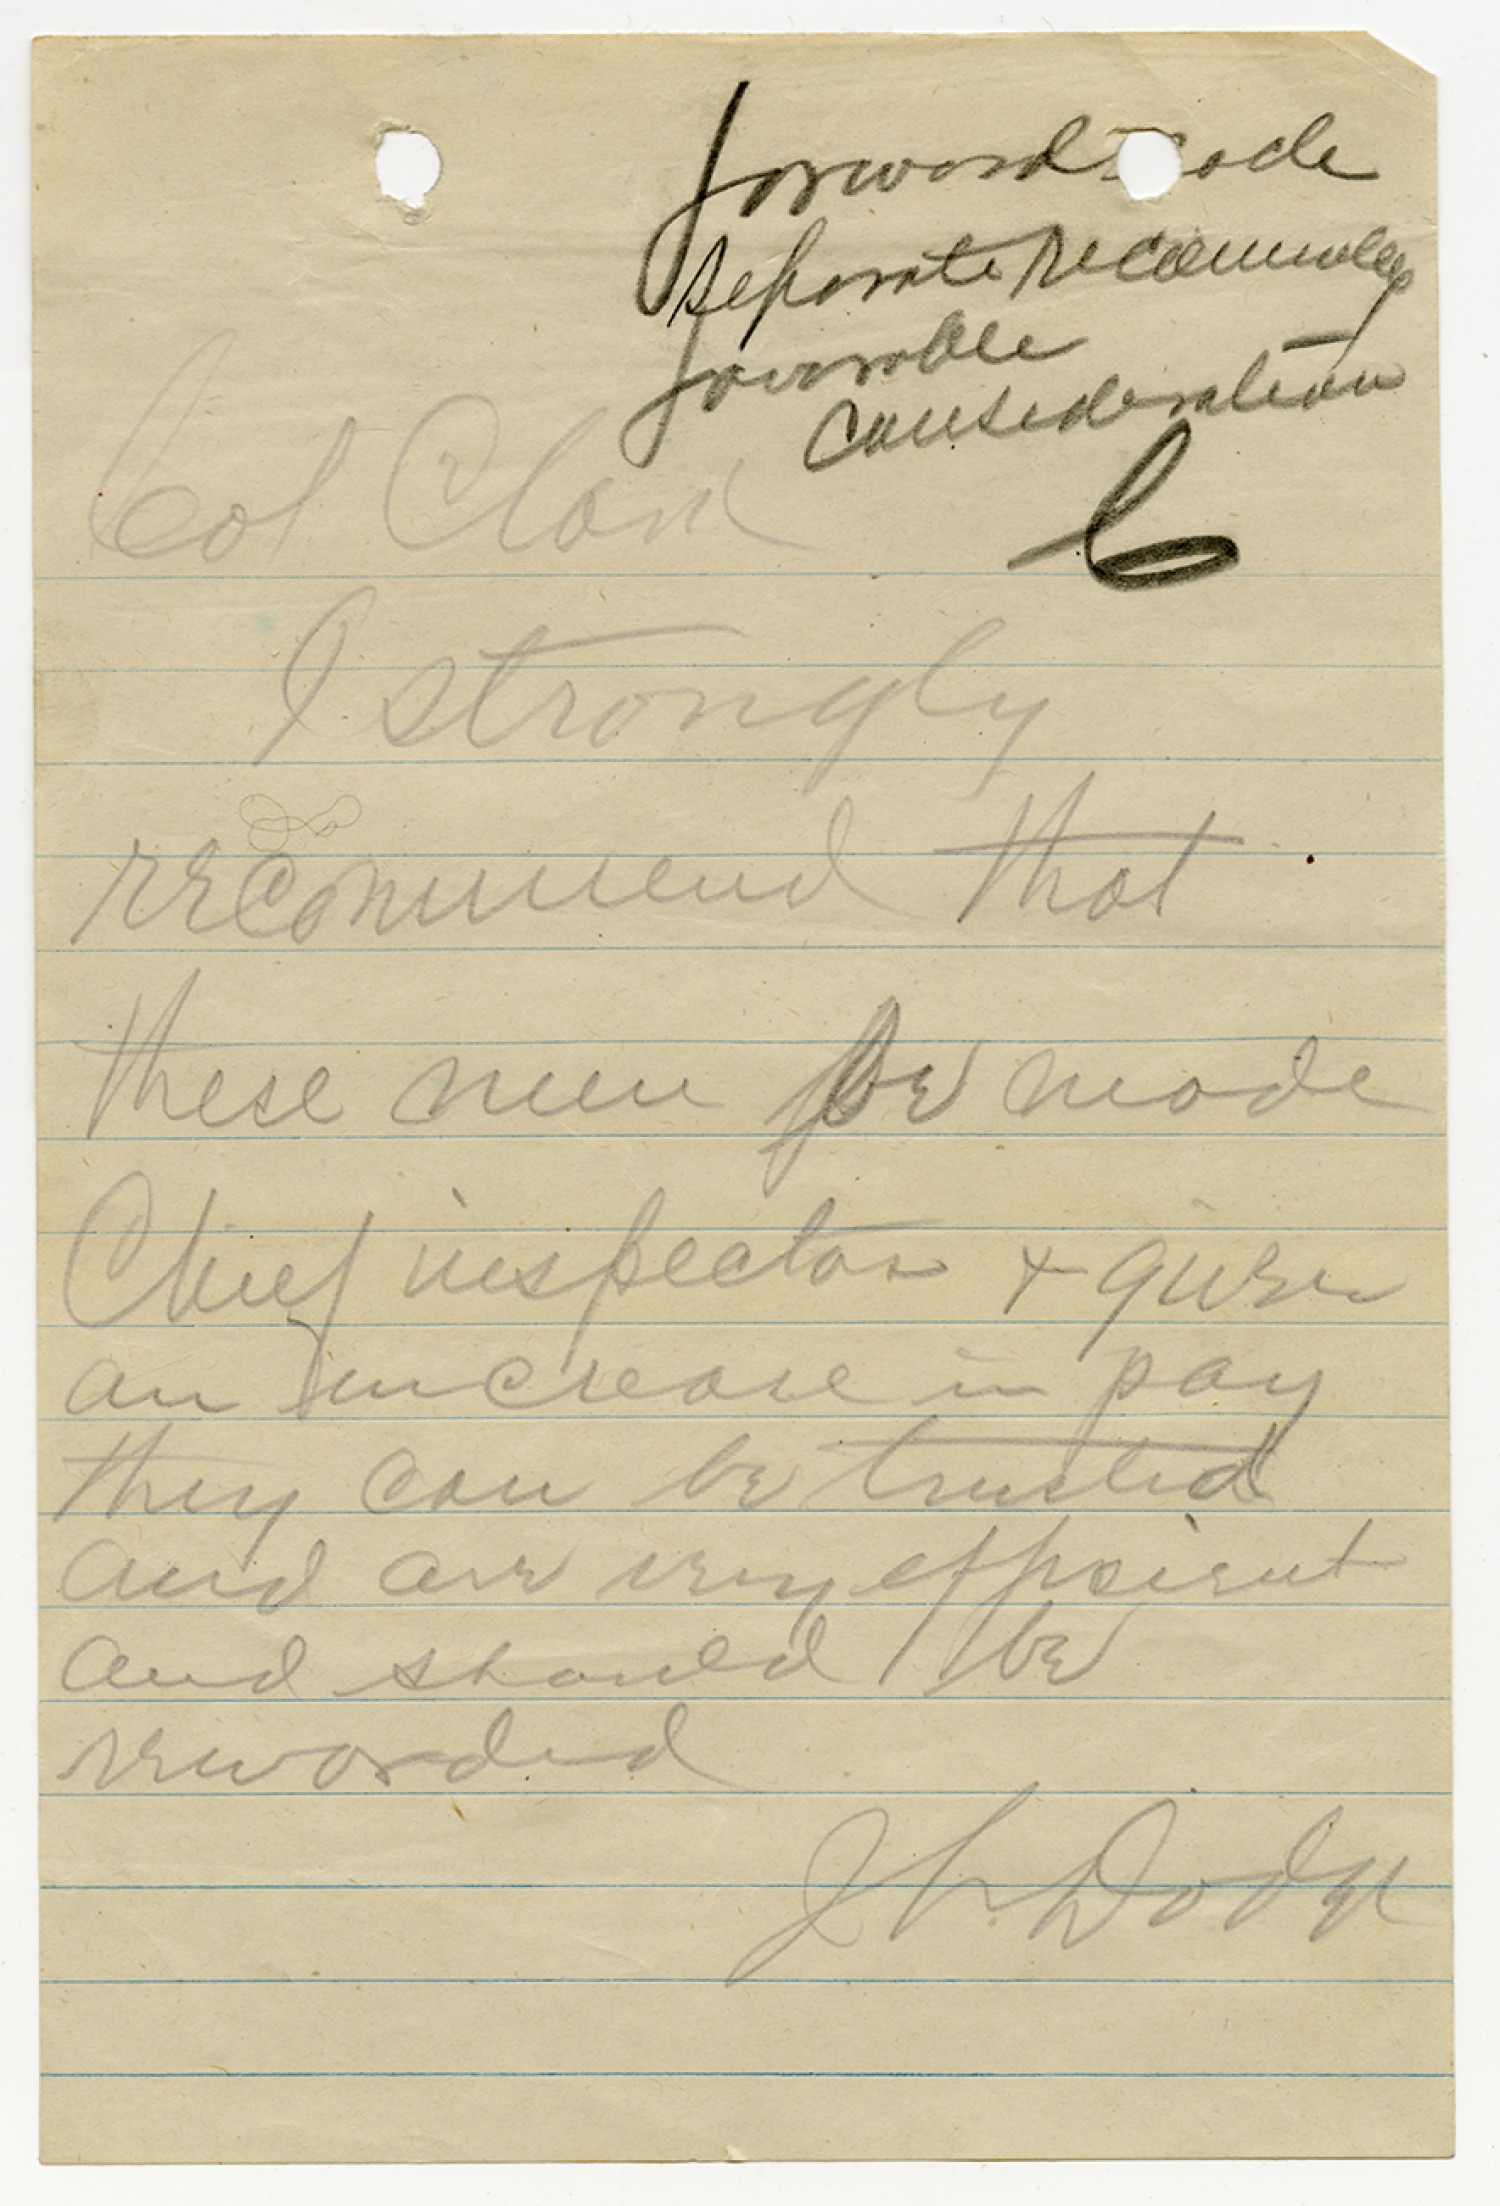 forward each
separate recommending
favorable
consideration
C
Col Clark
I strongly
recommend that
these men be made
Chief inspector + given
an increase in pay
they can be trusted
and are very efficient
and should be
rewarded
J L Dodge